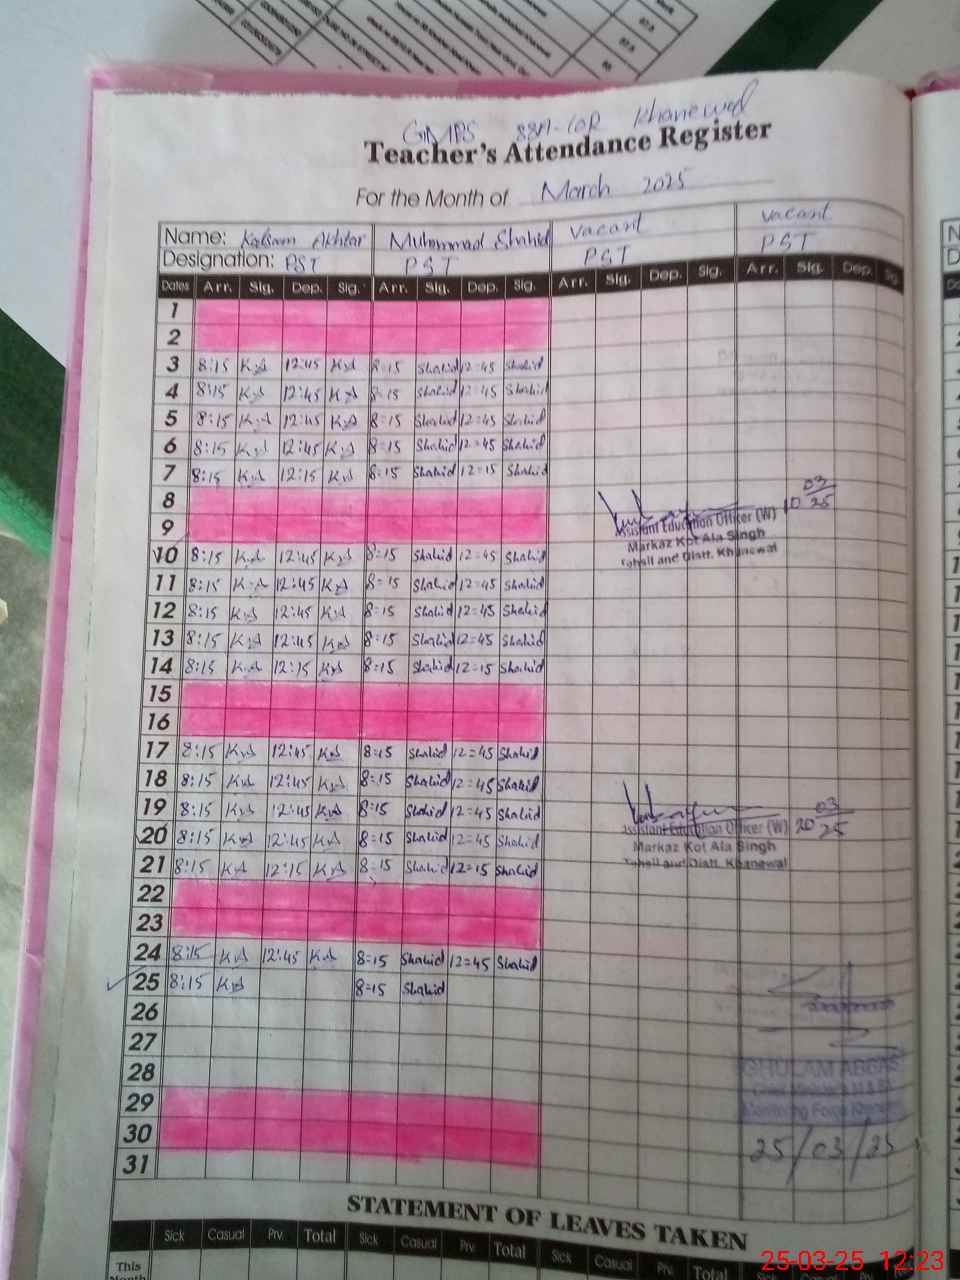 GMPS 88A-10R Khanewal
Teacher's Attendance Register
For the Month of March 2025
Name: Kalsoom Akhtar Muhammad Shahid vacant vacant
Designation: PST PST PST PST
Dates Arr. Sig. Dep. Sig. Arr. Sig. Dep. Sig. Arr. Sig. Dep. Sig. Arr. Sig. Dep. Sig.
1
2
3 8:15 K.A 12:45 K.A 8=15 Shahid 12=45 Shahid
4 8:15 K.A 12:45 K.A 8=15 Shahid 12=45 Shahid
5 8:15 K.A 12:45 K.A 8=15 Shahid 12=45 Shahid
6 8:15 K.A 12:45 K.A 8=15 Shahid 12=45 Shahid
7 8:15 K.A 12:15 K.A 8=15 Shahid 12=15 Shahid
8
9
10 03/25
Assistant Education Officer (W)
Markaz Kot Ala Singh
Tehsil and Distt. Khanewal
10 8:15 K.A 12:45 K.A 8=15 Shahid 12=45 Shahid
11 8:15 K.A 12:45 K.A 8=15 Shahid 12=45 Shahid
12 8:15 K.A 12:45 K.A 8=15 Shahid 12=45 Shahid
13 8:15 K.A 12:45 K.A 8=15 Shahid 12=45 Shahid
14 8:15 K.A 12:15 K.A 8=15 Shahid 12=15 Shahid
15
16
17 8:15 K.A 12:45 K.A 8=15 Shahid 12=45 Shahid
18 8:15 K.A 12:45 K.A 8=15 Shahid 12=45 Shahid
19 8:15 K.A 12:45 K.A 8=15 Shahid 12=45 Shahid
20 03/25
Assistant Education Officer (W)
Markaz Kot Ala Singh
Tehsil and Distt. Khanewal
20 8:15 K.A 12:45 K.A 8=15 Shahid 12=45 Shahid
21 8:15 K.A 12:15 K.A 8=15 Shahid 12=15 Shahid
22
23
24 8:15 K.A 12:45 K.A 8=15 Shahid 12=45 Shahid
25 8:15 K.A 8=15 Shahid
26
27
28
GHULAM ABBAS
Monitoring Force
29
30
31
25/03/25
STATEMENT OF LEAVES TAKEN
Sick Casual Prv. Total Sick Casual Prv. Total Sick Casual Prv. Total Sick Casual
This
Month
25-03-25 12:23